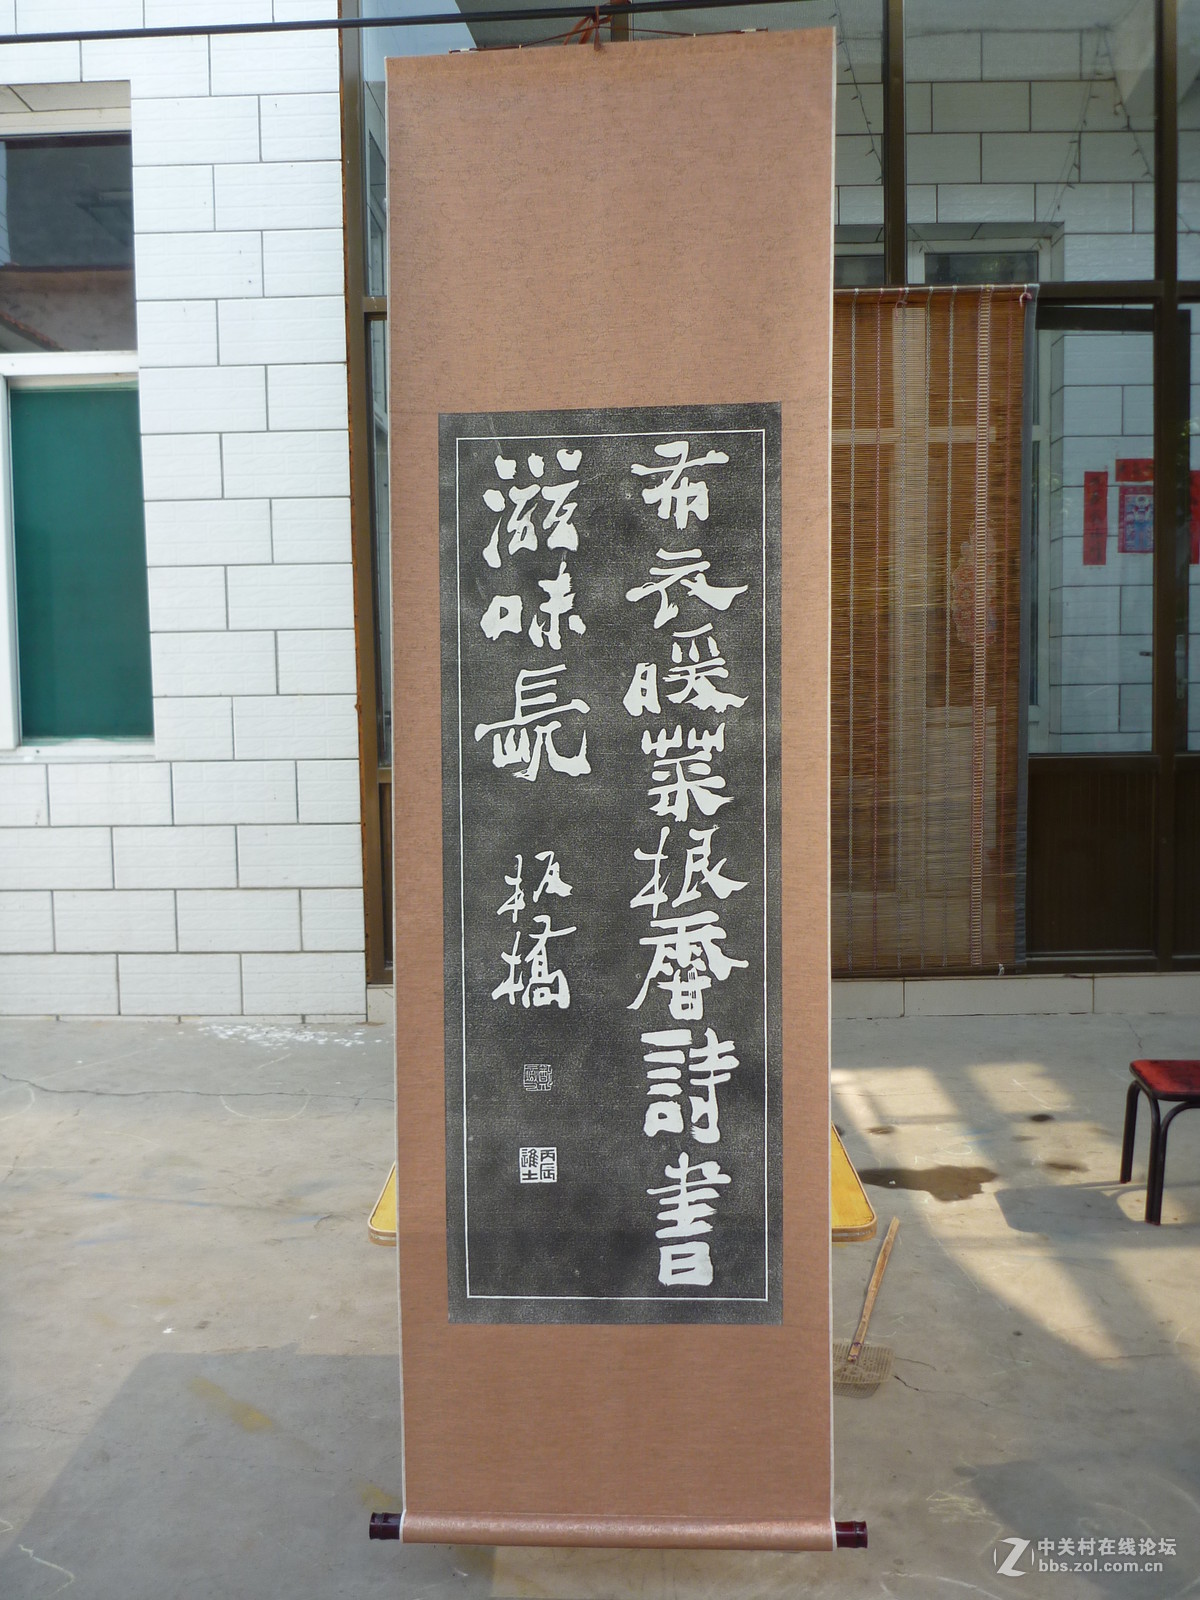 布衣暖菜根香詩書
滋味長
板橋
丙辰進士
中关村在线论坛
bbs.zol.com.cn